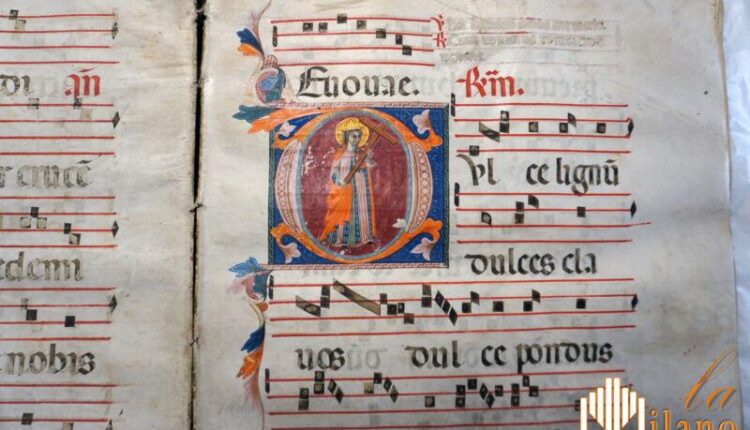 di an̄
r crucē
edemi
nobis
Euouae. Rm̄.
Vl ce lignū
dulces cla
uos dul ce pondus
la
Milano